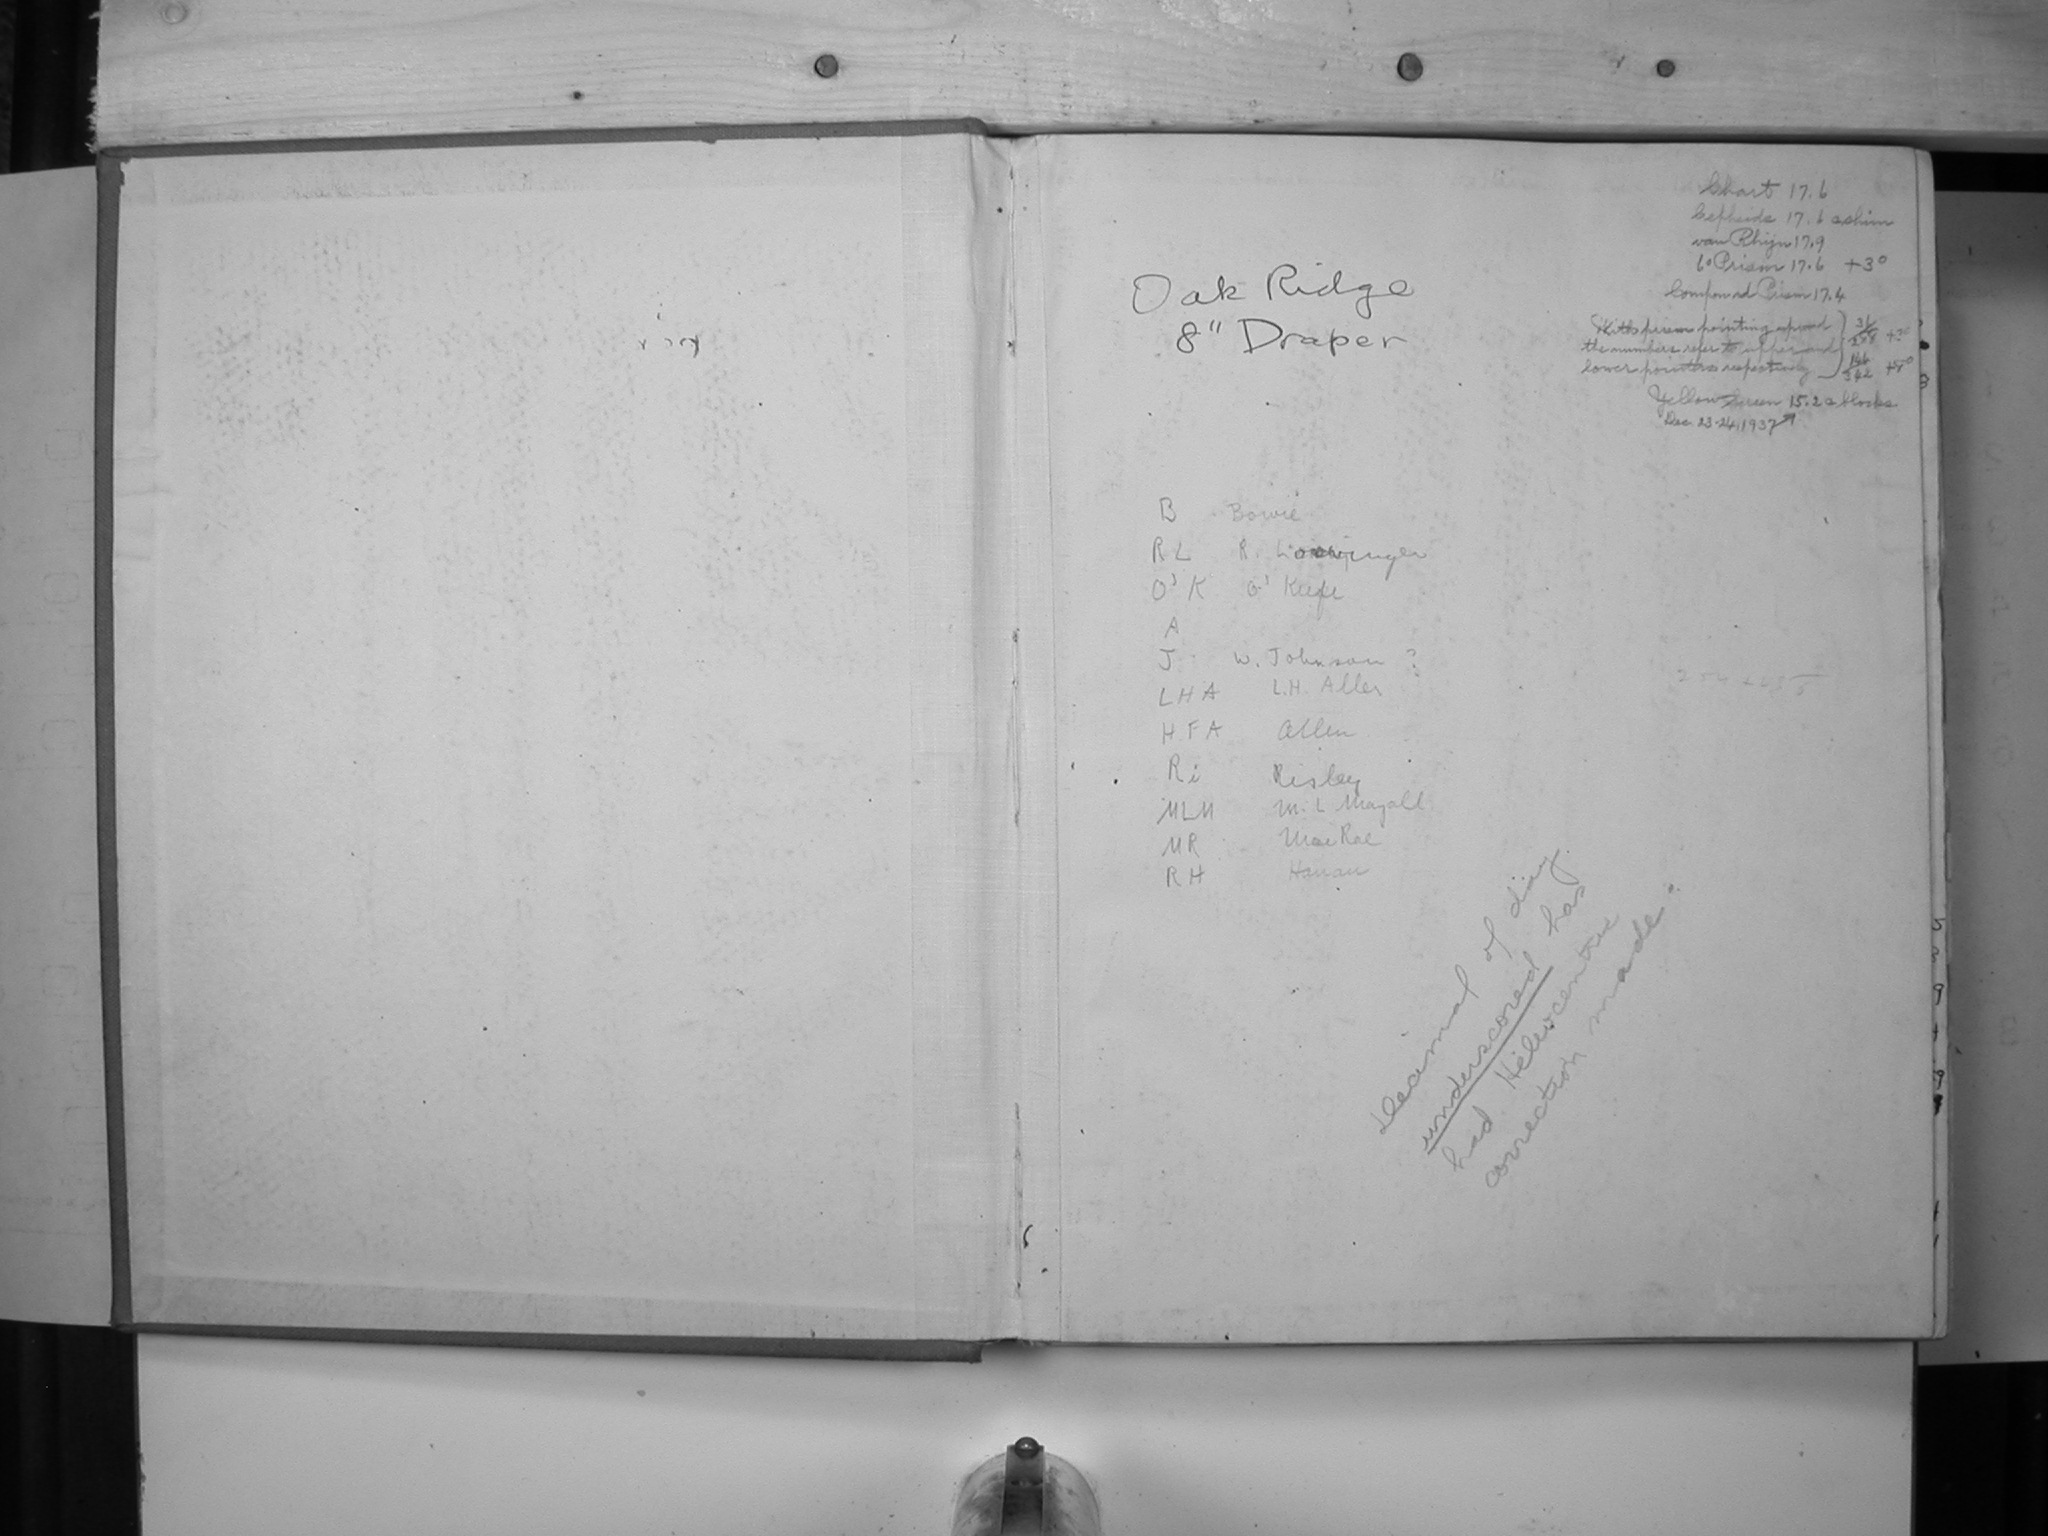 Chart 17.6
Cepheids 17.6 c shim
van Rhijn 17.9
6° Prism 17.6 +3°
Compound Prism 17.4
Oak Ridge
8" Draper
With prism pointing upward
the numbers refer to upper and
lower pointers respectively
Yellow screen 15.2 c blocks
Dec. 23-24, 1937
B Bowie
R L R.
O'K O'Keefe
A
J W. Johnson ?
L H A L.H. Aller
H F A Allen
Ri Risley
MLM M. L. Mayall
MR MacRae
R H Hanau
Decimal of day
underscored has
had Heliocentric
correction made.